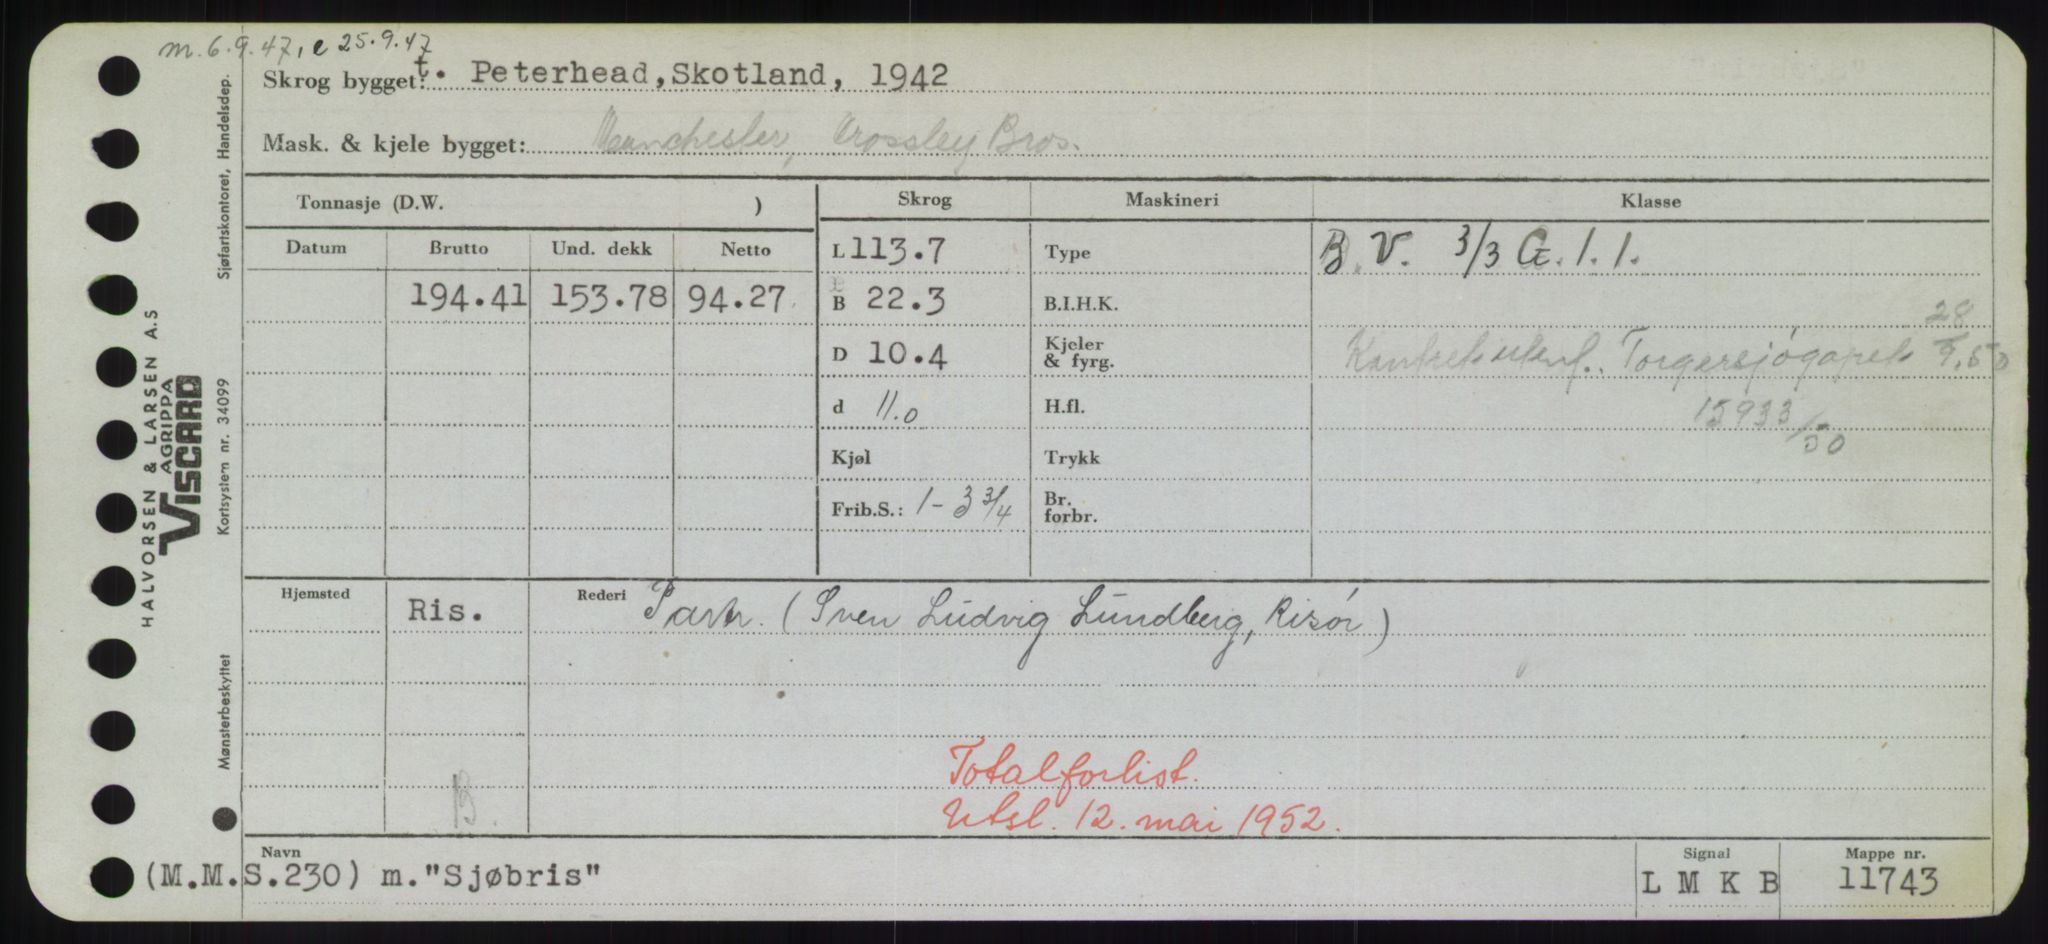 m. 6.9.47, e 25.9.47
Skrog bygget: t. Peterhead, Skotland, 1942
Mask. & kjele bygget: Manchester, Crossley Bros.
Tonnasje (D.W. )
Skrog
Maskineri
Klasse
Datum Brutto Und. dekk Netto
194.41 153.78 94.27
L 113.7
B 22.3
D 10.4
d 11.0
Kjøl
Frib.S.: 1-3 3/4
Type
B.I.H.K.
Kjeler
& fyrg.
H.fl.
Trykk
Br.
forbr.
B.V. 3/3 G.1.1.
Torgersjøgapet 28/9.50
15933/50
Hjemsted Ris. Rederi Partr. (Sven Ludvig Lundberg, Risör)
Totalforlist.
B.
Utsl. 12. mai 1952.
Navn
(M.M.S.230) m."Sjøbris"
Signal
L M K B
Mappe nr.
11743
HALVORSEN & LARSEN A.S
AGRIPPA
VISCARD
Sjøfartskontoret, Handelsdep.
Kortsystem nr. 34099
Mønsterbeskyttet